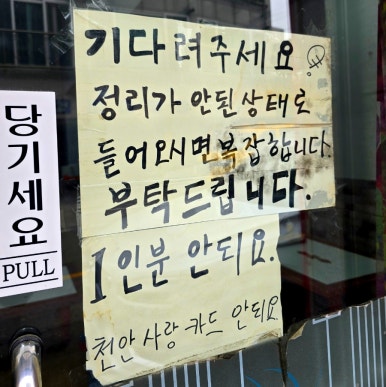 기다려주세요.
정리가 안된 상태로
들어오시면 복잡합니다.
부탁드립니다.
1인분 안되요.
천안사랑카드 안되요
당기세요
PULL